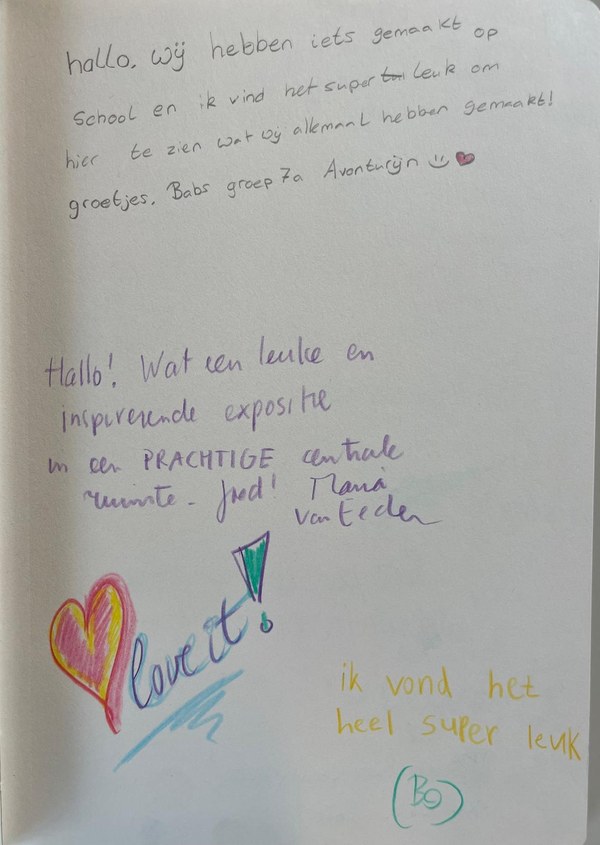 hallo. wij hebben iets gemaakt op
school en ik vind het super leuk om
hier te zien wat wij allemaal hebben gemaakt!
groetjes. Babs groep 7a Avonturijn
Hallo! Wat een leuke en
inspirerende expositie
in een PRACHTIGE centrale
ruimte. Maria
van Eeden
love it!
ik vond het
heel super leuk
(Bo)